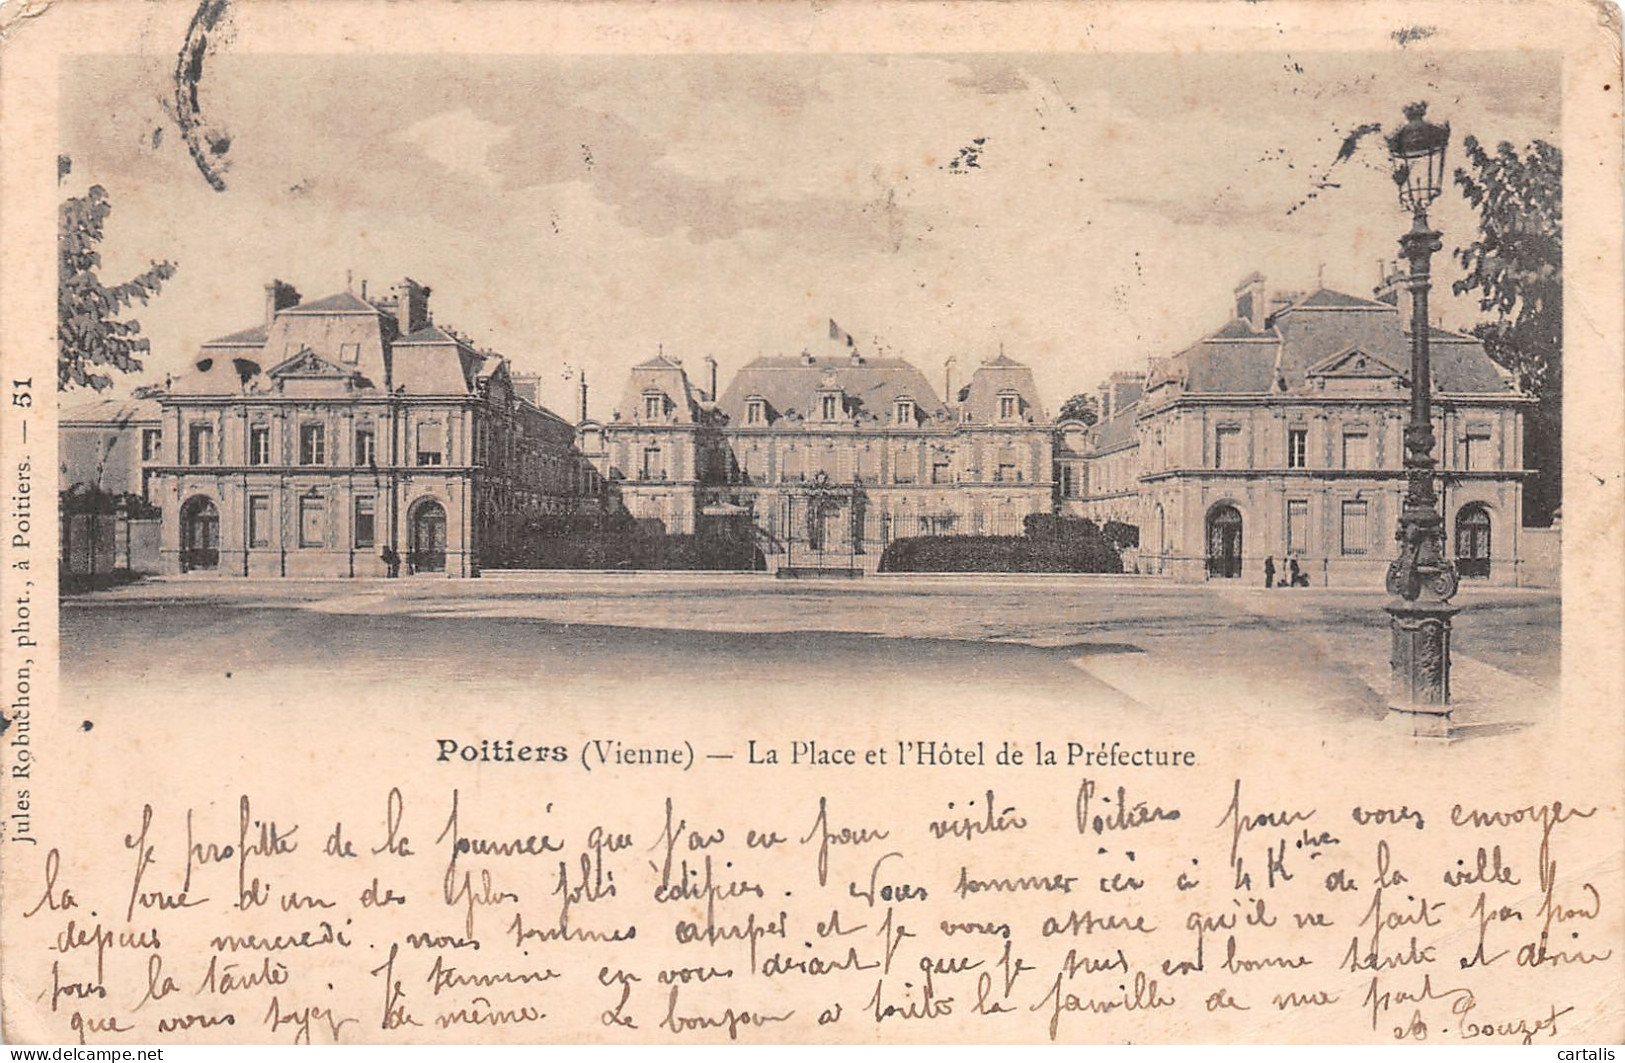 Jules Robuchon, phot., à Poitiers. — 51
Poitiers (Vienne) — La Place et l'Hôtel de la Préfecture
Je profitte de la journée que j'ai eu pour visiter Poitiers pour vous envoyer
la vue d'un des plus jolis édifices. Nous sommes ici à 4 Kitres de la ville
depuis mercredi. nous sommes campés et je vous assure qu'il ne fait pas froid
sous la tante. Je termine en vous disant que je suis en bonne santé et désire
que vous soyez de même. Le bonjour a toute la famille de ma part
Touzet
cartalis
delcampe.net